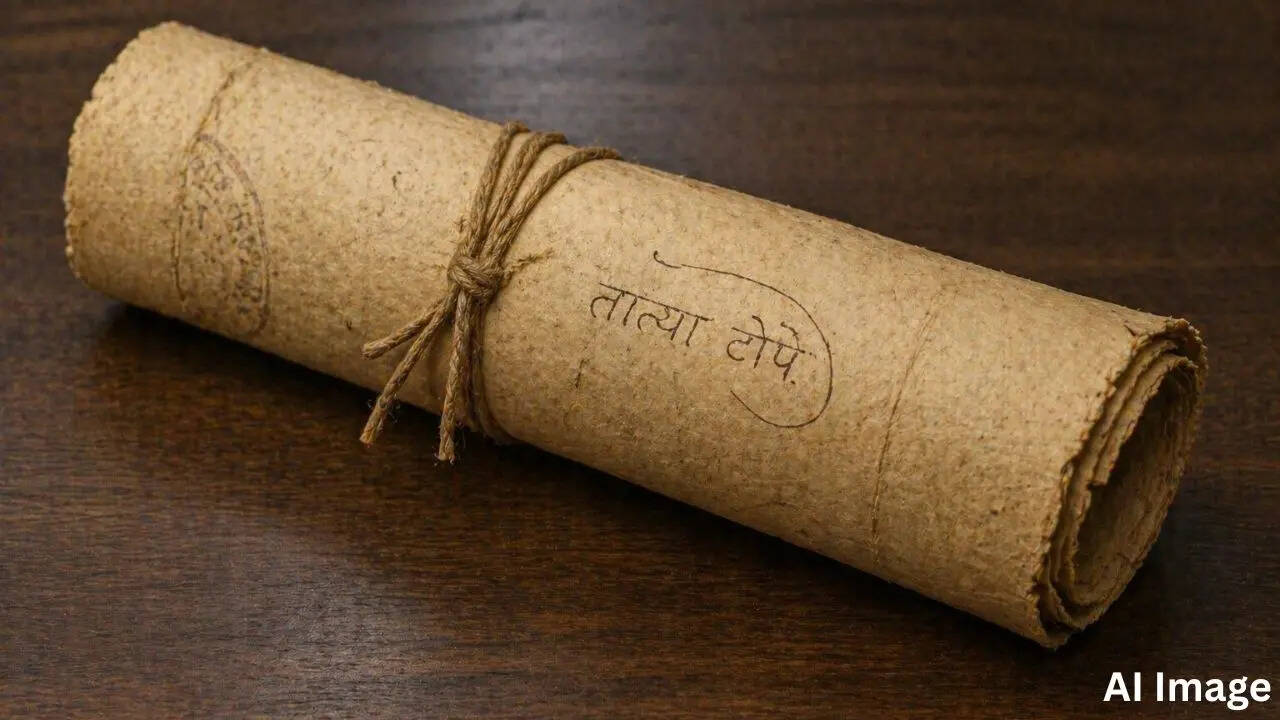 तात्या टोपे
AI Image